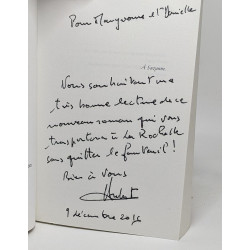 Pour Marguerite et Danielle
A Jacques
Vous souhaitant une
très bonne lecture de ce
nouveau roman qui vous
transportera à La Rochelle
sans quitter le fauteuil !
Bien à vous
9 décembre 2016